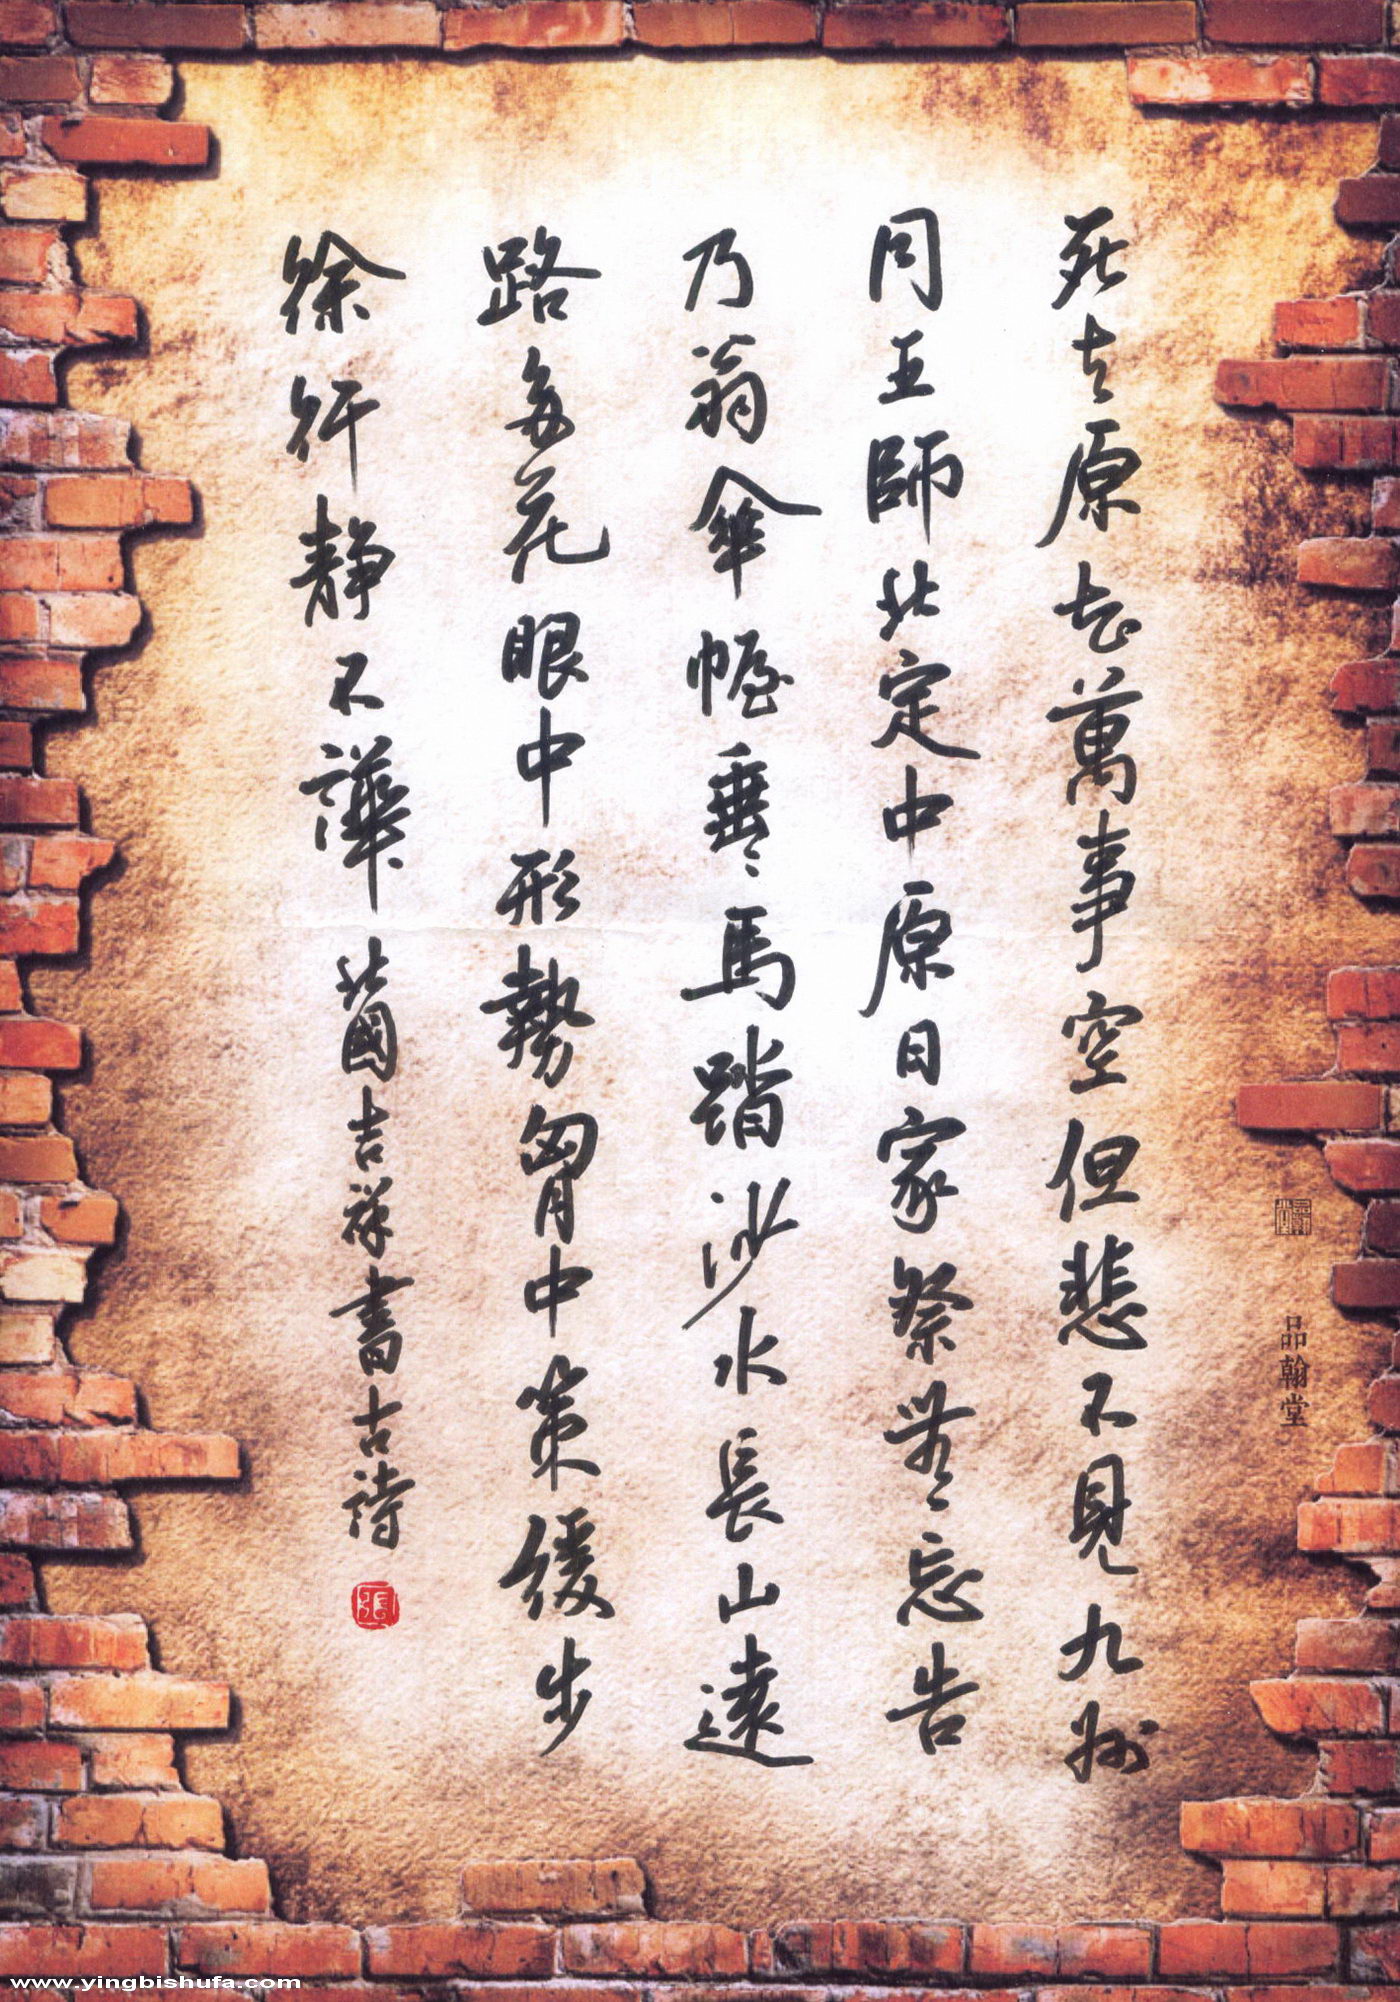 品翰堂
死去原知萬事空但悲不見九州
同王師北定中原日家祭無忘告
乃翁傘幄垂〻馬踏沙水長山遠
路多花眼中形勢胷中策緩步
徐行静不譁 北國吉祥書古詩
張
www.yingbishufa.com